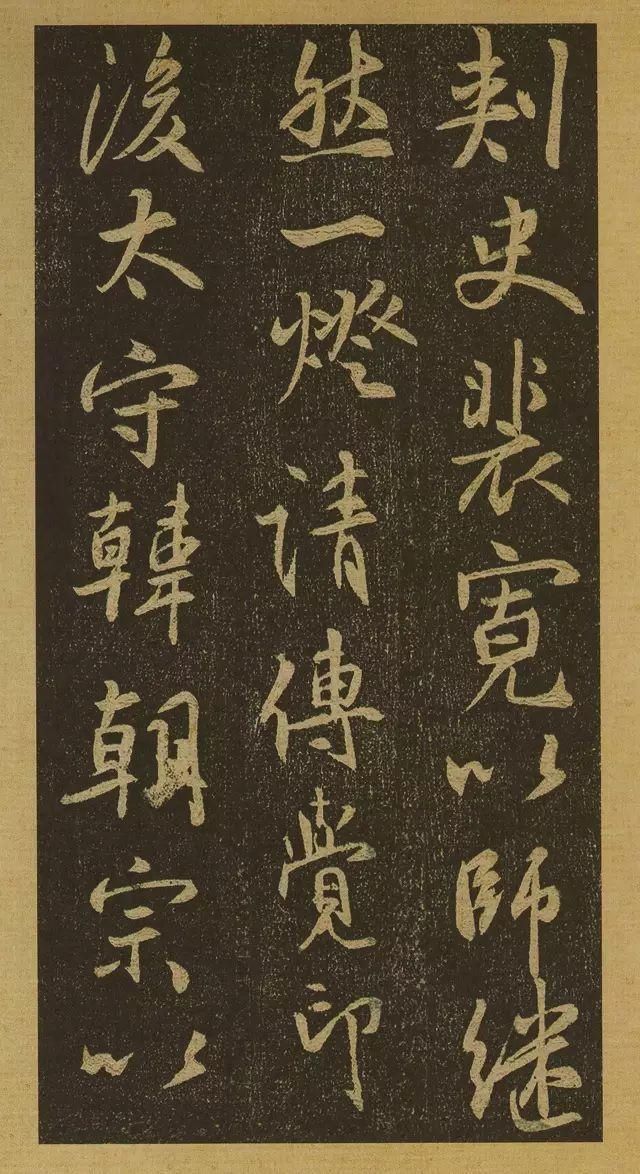 刺史裴寛以師继
然一燈请傳覺印
後太守韓朝宗以